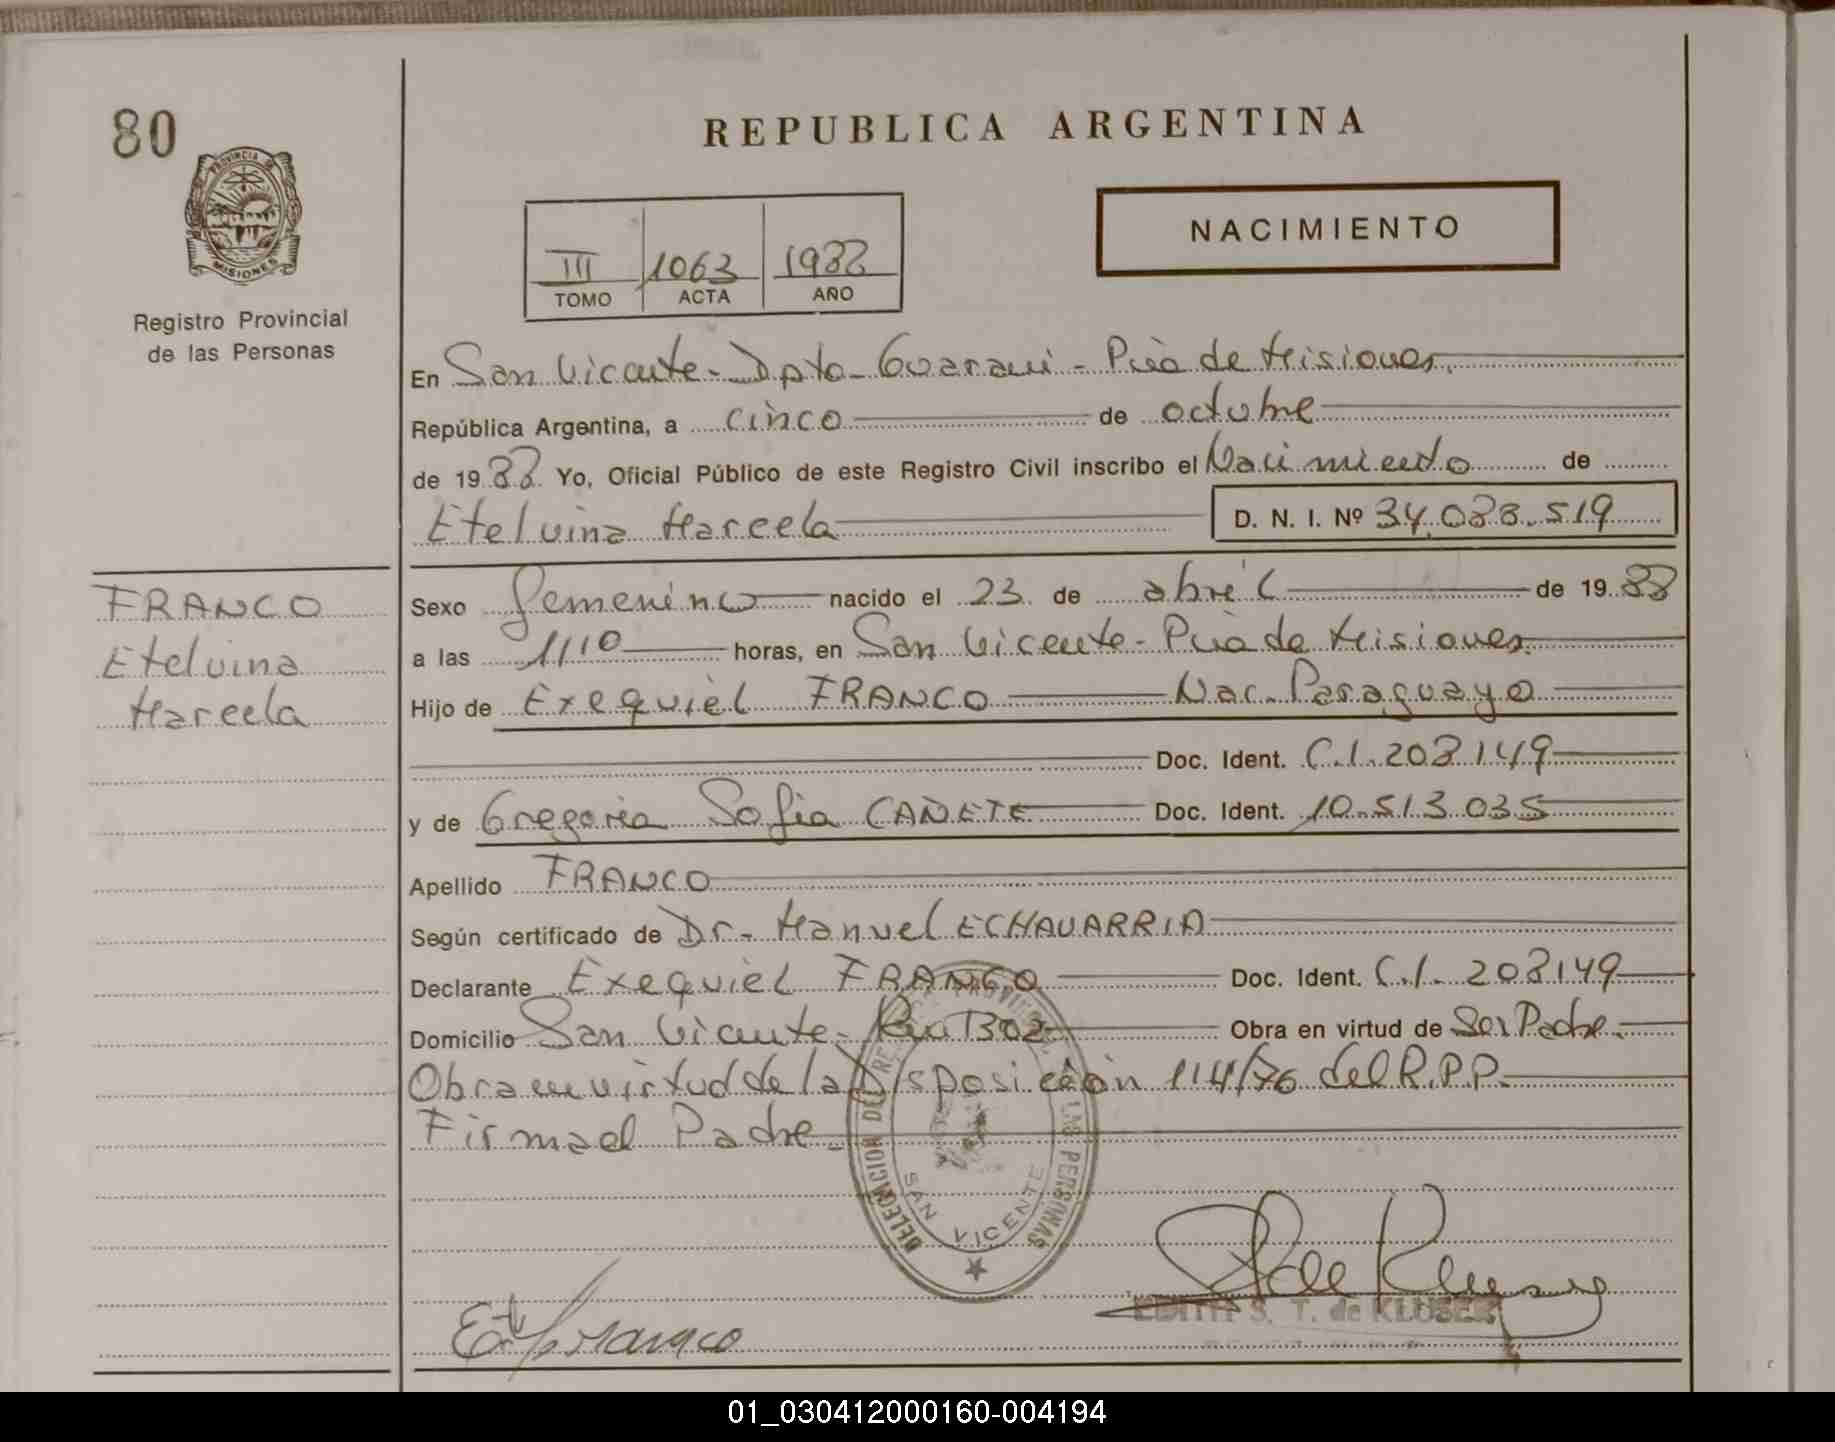 80
REPUBLICA ARGENTINA
PROVINCIA DE
MISIONES
NACIMIENTO
III 1063 1988
TOMO ACTA AÑO
Registro Provincial
de las Personas
En San Vicente - Dpto - Guarani - Pcia de Misiones.
República Argentina, a cinco de octubre
de 1988 Yo, Oficial Público de este Registro Civil inscribo el Nacimiento de
Etelvina Marcela D. N. I. Nº 34.088.519
FRANCO
Etelvina
Marcela
Sexo femenino nacido el 23 de abril de 1988
a las 1110 horas, en San Vicente - Pcia de Misiones.
Hijo de Exequiel FRANCO Nac. Paraguayo
Doc. Ident. C.I. 208149
y de Gregoria Sofia CAÑETE Doc. Ident. 10.513.035
Apellido FRANCO
Según certificado de Dr. Manuel ECHAVARRIA
Declarante Exequiel FRANCO Doc. Ident. C.I. 208149
Domicilio San Vicente - 1302 Obra en virtud de Ser Padre.
Obra en virtud de la Disposición 114/76 del R.P.P.
Firma el Padre.
DELEGACION DEL REG. PROVINCIAL DE LAS PERSONAS
SAN VICENTE
EDITH S. T. de KLUSER
01_030412000160-004194